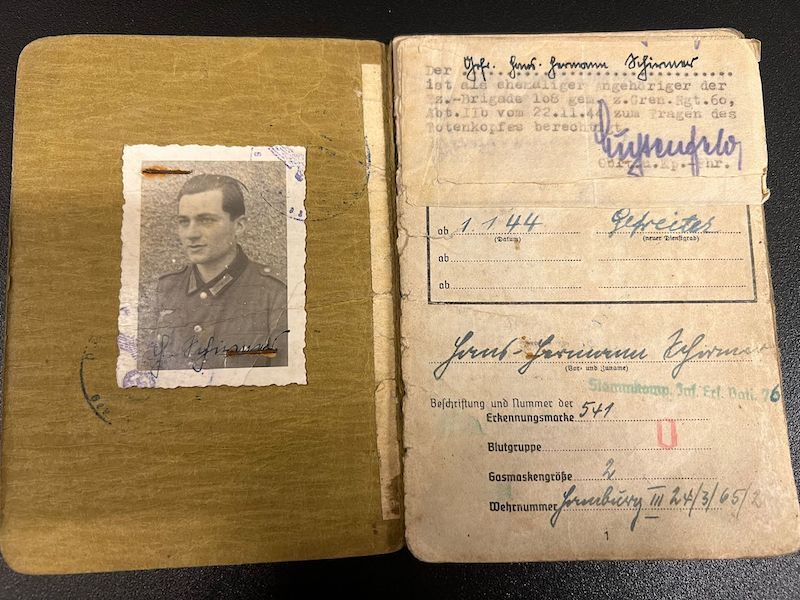 H. Schirmer
Gefr. Hans-Hermann Schirmer
Der
ist als ehemaliger Angehöriger der
Pz.-Brigade 108 gem. z.Gren.Rgt.60,
Abt.IIb vom 22.11.44 zum Tragen des
Totenkopfes berechtigt
ab 1.1.44 Gefreiter
(Datum) (neuer Dienstgrad)
ab
ab
Hans-Hermann Schirmer
(Vor- und Zuname)
Stammkomp. Inf. Ers. Batl. 76
Beschriftung und Nummer der
Erkennungsmarke 541
Blutgruppe
Gasmaskengröße 2
Wehrnummer Hamburg III 24/3/65/2
1